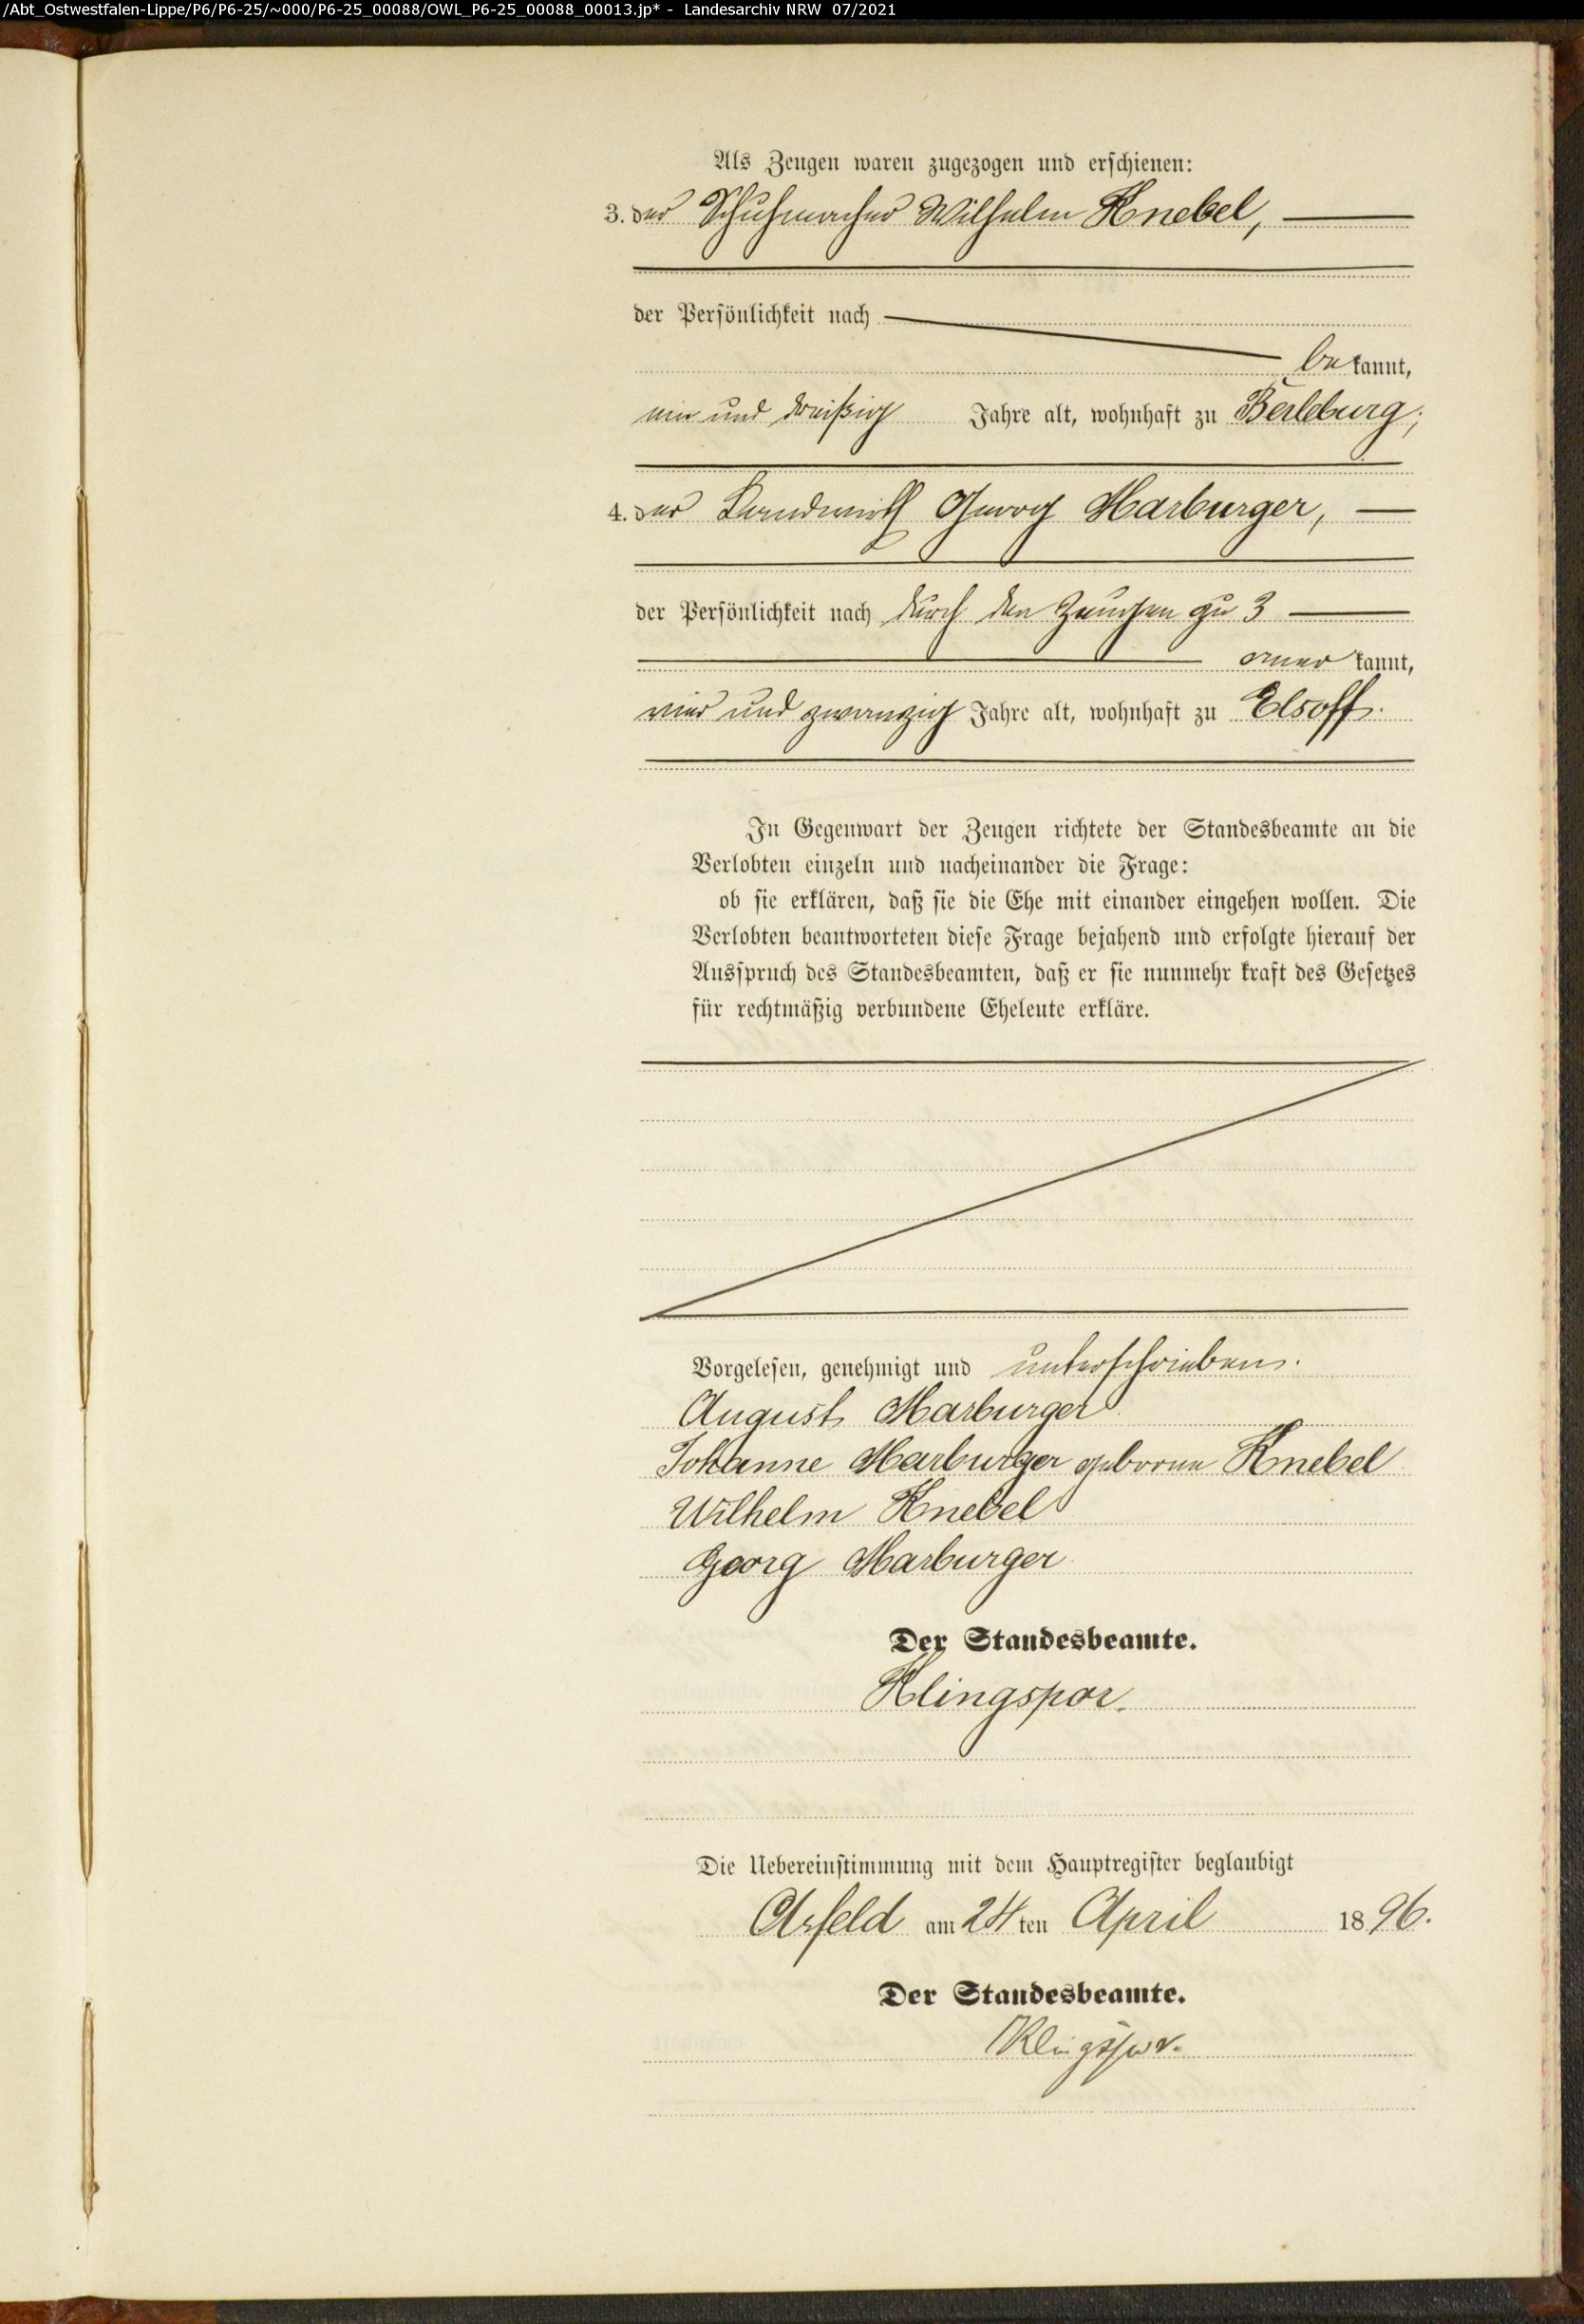 /Abt_Ostwestfalen-Lippe/P6/P6-25/~000/P6-25_00088/OWL_P6-25_00088_00013.jp* - Landesarchiv NRW 07/2021
Als Zeugen waren zugezogen und erschienen:
3. der Schuhmacher Wilhelm Knebel,
der Persönlichkeit nach
bekannt,
ein und dreißig Jahre alt, wohnhaft zu Berleburg;
4. der Landwirth Georg Marburger,
der Persönlichkeit nach durch den Zeugen zu 3
anerkannt,
vier und zwanzig Jahre alt, wohnhaft zu Elsoff.
In Gegenwart der Zeugen richtete der Standesbeamte an die
Verlobten einzeln und nacheinander die Frage:
ob sie erklären, daß sie die Ehe mit einander eingehen wollen. Die
Verlobten beantworteten diese Frage bejahend und erfolgte hierauf der
Ausspruch des Standesbeamten, daß er sie nunmehr kraft des Gesetzes
für rechtmäßig verbundene Eheleute erkläre.
Vorgelesen, genehmigt und unterschrieben.
August Marburger
Johanne Marburger geborne Knebel
Wilhelm Knebel
Georg Marburger
Der Standesbeamte.
Klingspor.
Die Uebereinstimmung mit dem Hauptregister beglaubigt
Arfeld am 24ten April 1896.
Der Standesbeamte.
Klingspor.